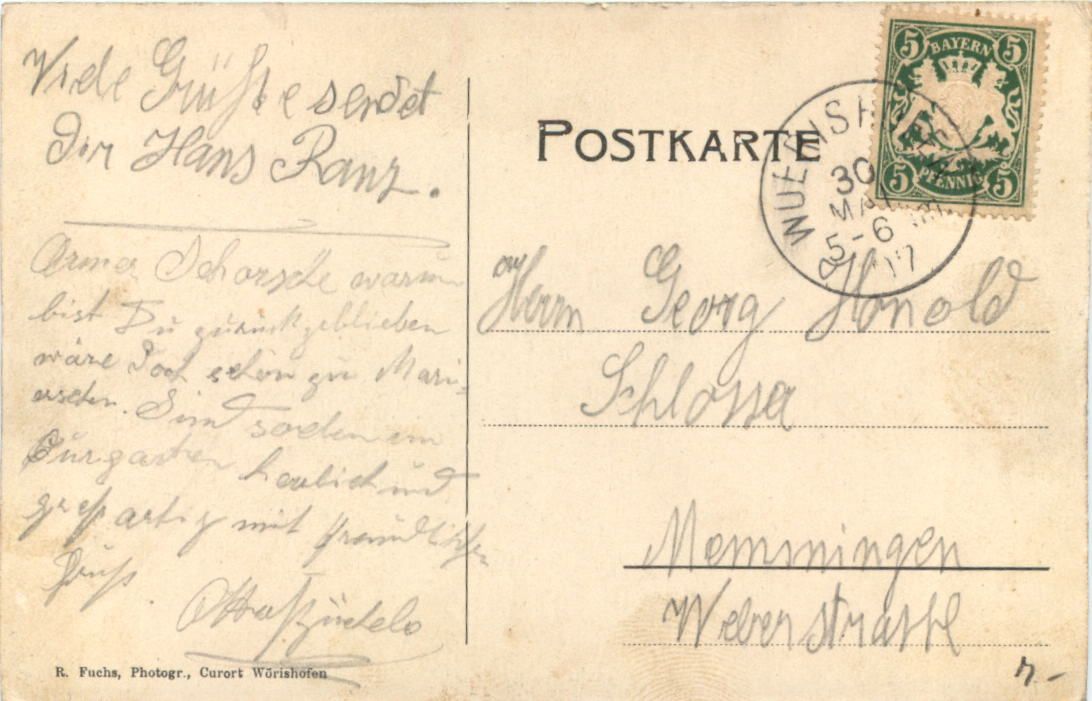 Viele Grüße sendet
Dir Hans Ranz.
Armer Schorsch warum
bist Du zurückgeblieben
wäre doch schön zu
Sind soeben im
Curgarten herrlich und
großartig mit freundlichen
Gruß
Otto
R. Fuchs, Photogr., Curort Wörishofen
POSTKARTE
BAYERN
5 5
PFENNIG
5 5
30
MAI
5-6
07
Herrn Georg Honold
Schlosser
Memmingen
Weberstraße